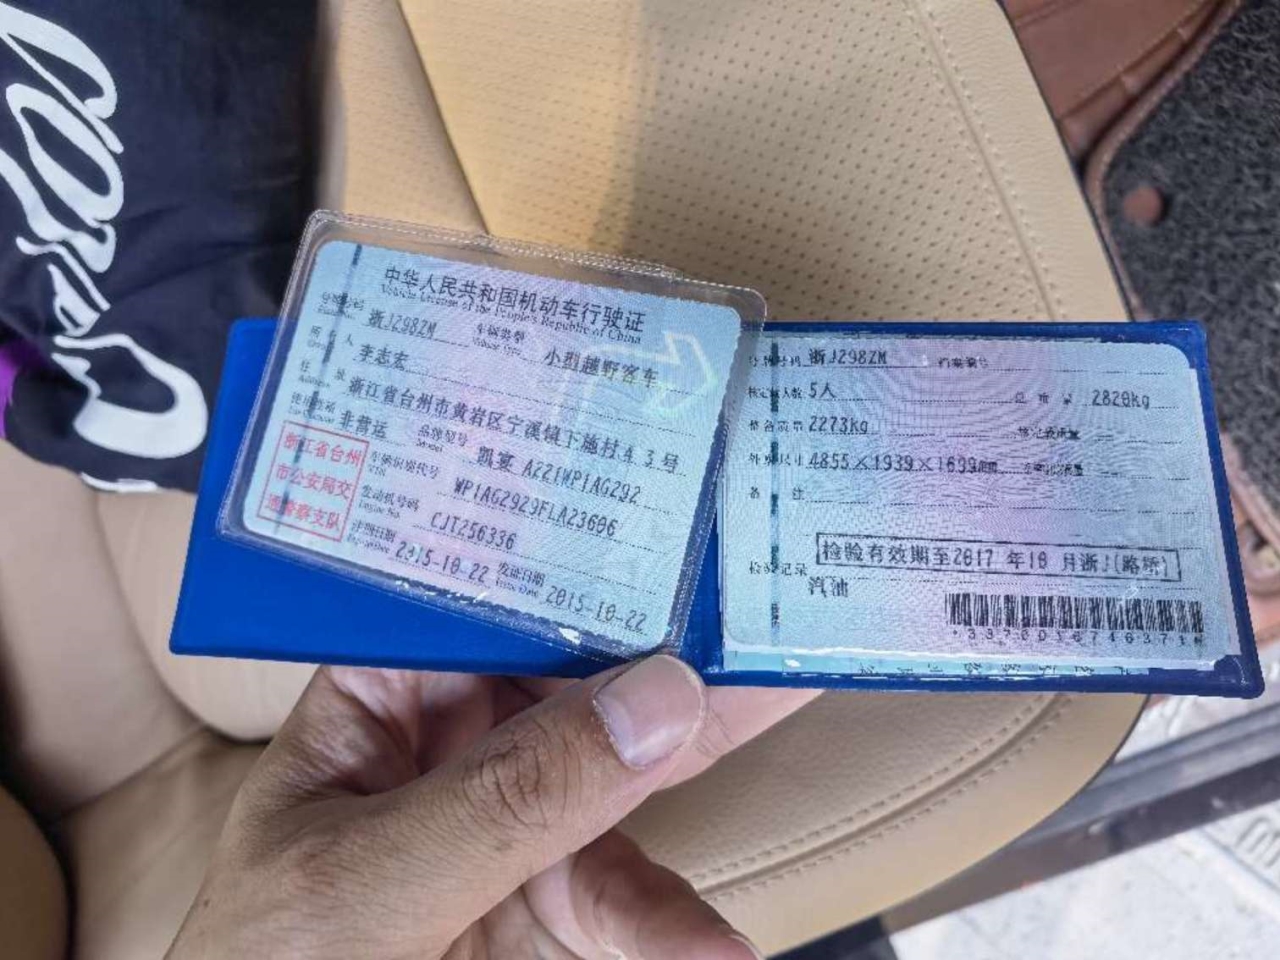 中华人民共和国机动车行驶证
Vehicle License of the People's Republic of China
号牌号码 浙J298ZM 车辆类型 小型越野客车
所有人 李志宏
住址 浙江省台州市黄岩区宁溪镇下施村43号
使用性质 非营运 品牌型号 凯宴 A221WP1AG292
浙江省台州
市公安局交
通警察支队
车辆识别代号 WP1AG2929FLA23606
发动机号码 CJT256336
注册日期 2015-10-22 发证日期 2015-10-22
号牌号码 浙J298ZM 档案编号
核定载人数 5人 总质量 2820kg
整备质量 2273kg 核定载质量
外廓尺寸 4855×1939×1699
备注
检验有效期至2017年10月浙J(路桥)
检验记录
汽油